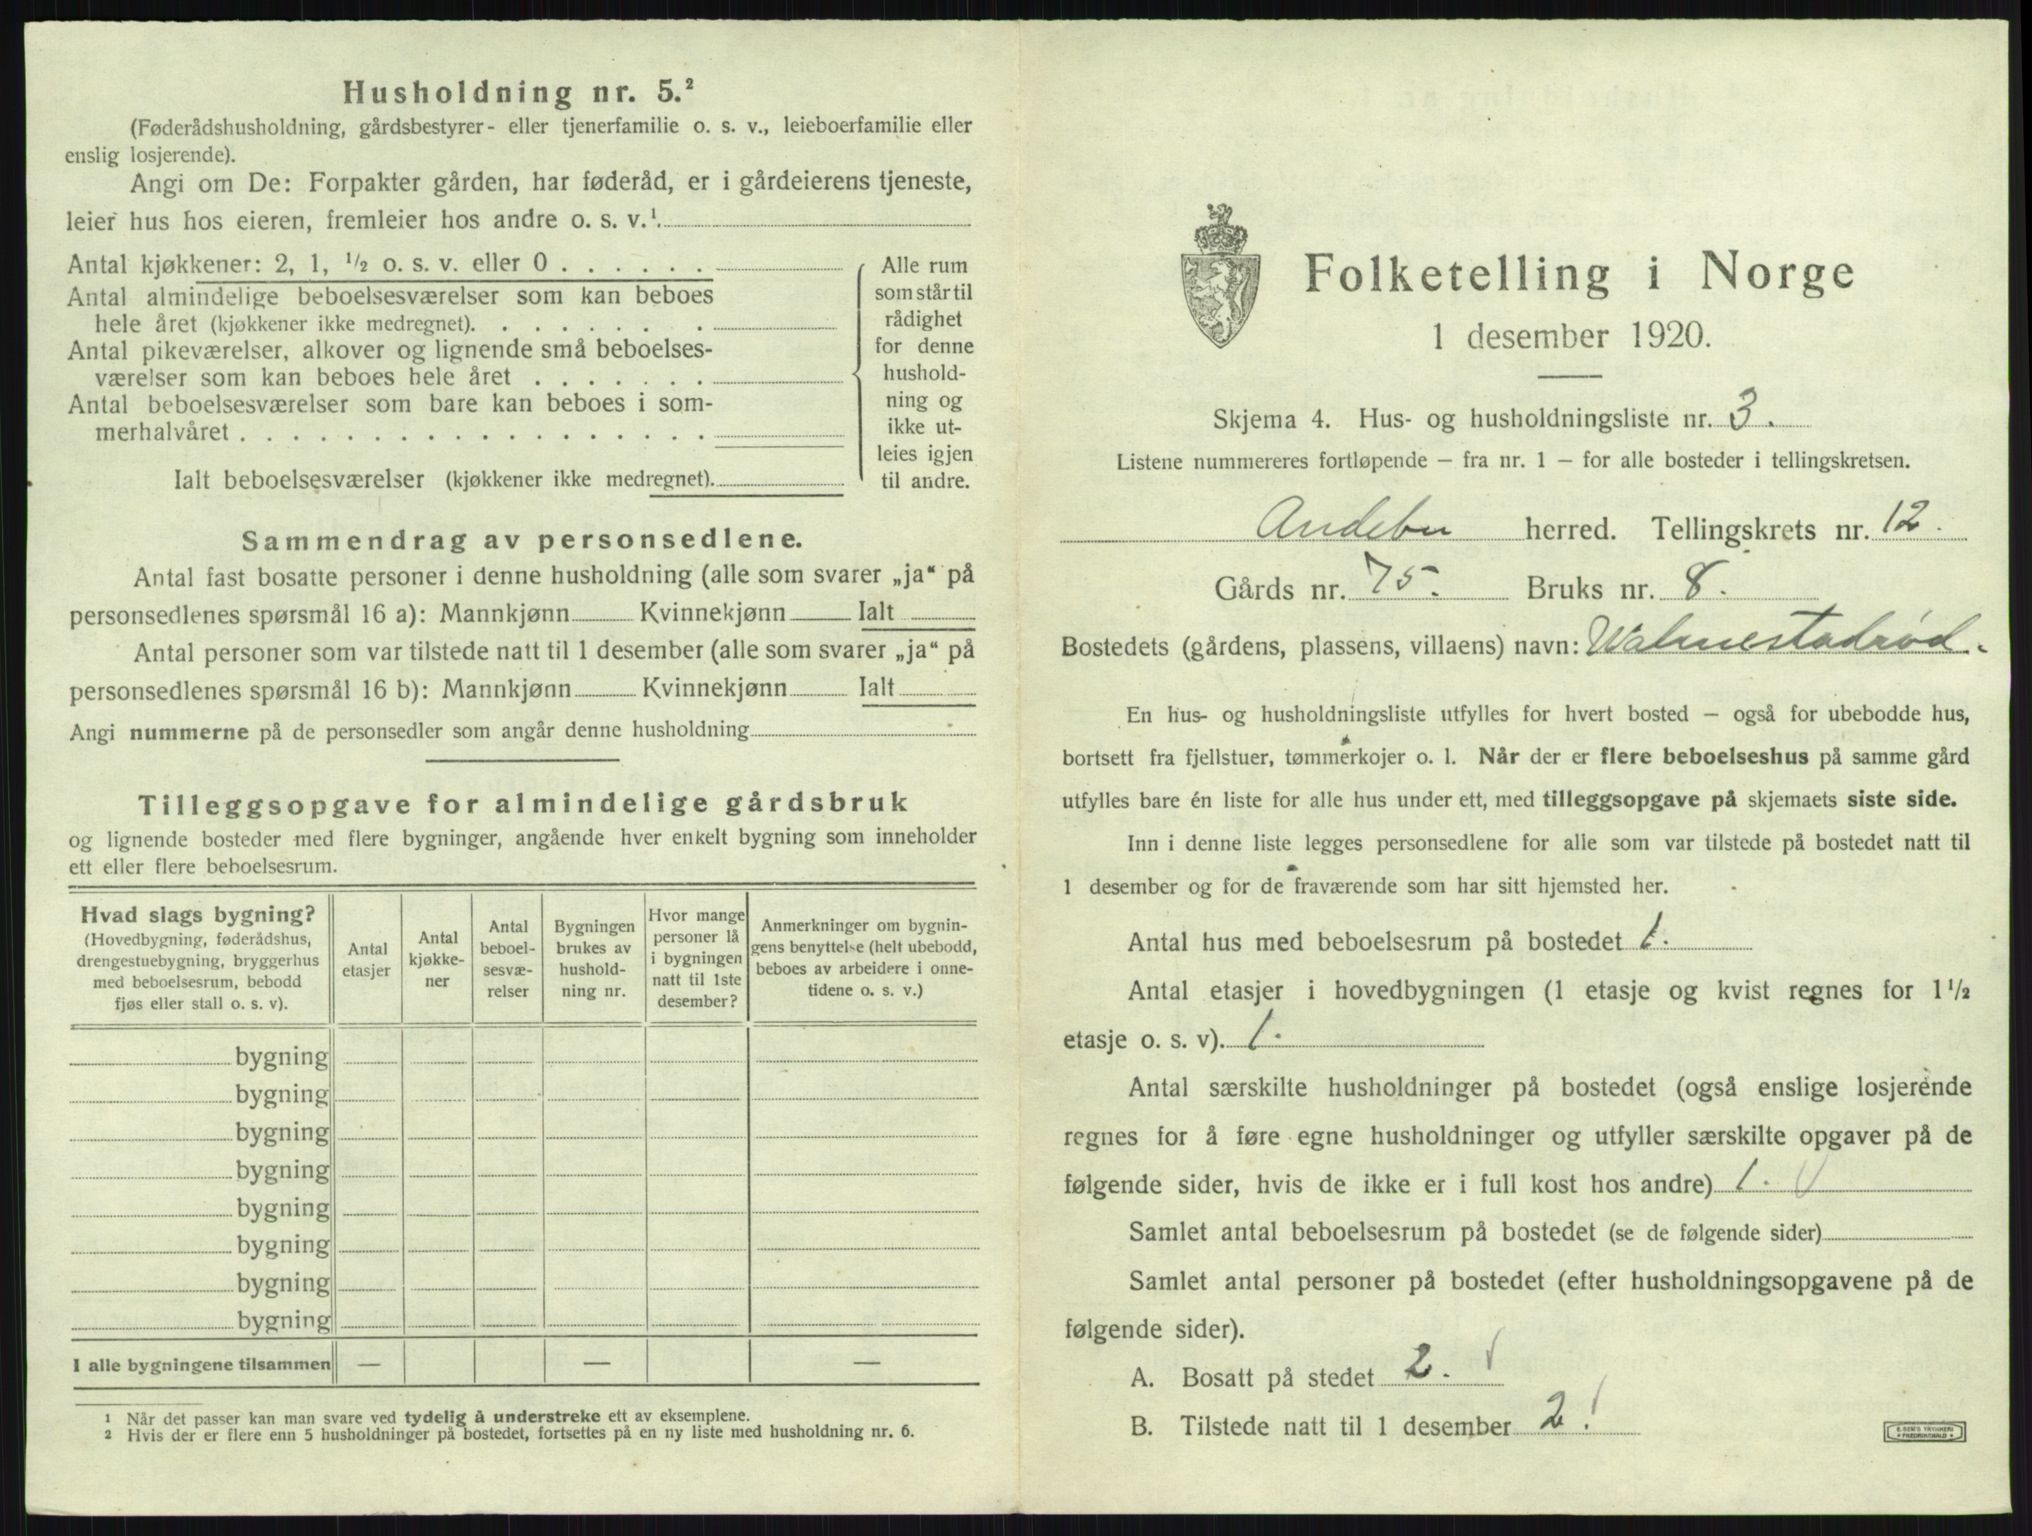 Husholdning nr. 5.²
(Føderådshusholdning, gårdsbestyrer- eller tjenerfamilie o. s. v., leieboerfamilie eller
enslig losjerende).
Angi om De: Forpakter gården, har føderåd, er i gårdeierens tjeneste,
leier hus hos eieren, fremleier hos andre o. s. v.¹.
Antal kjøkkener: 2, 1, ½ o. s. v. eller 0 . . . . . .
Antal almindelige beboelsesværelser som kan beboes
hele året (kjøkkener ikke medregnet). . . . . . .
Antal pikeværelser, alkover og lignende små beboelses-
værelser som kan beboes hele året . . . . . . .
Antal beboelsesværelser som bare kan beboes i som-
merhalvåret . . . . . . . . . . . . . . . . . .
Ialt beboelsesværelser (kjøkkener ikke medregnet).
Alle rum
som står til
rådighet
for denne
hushold-
ning og
ikke ut-
leies igjen
til andre.
Sammendrag av personsedlene.
Antal fast bosatte personer i denne husholdning (alle som svarer „ja“ på
personsedlenes spørsmål 16 a): Mannkjønn Kvinnekjønn Ialt
Antal personer som var tilstede natt til 1 desember (alle som svarer „ja“ på
personsedlenes spørsmål 16 b): Mannkjønn Kvinnekjønn Ialt
Angi nummerne på de personsedler som angår denne husholdning
Tilleggsopgave for almindelige gårdsbruk
og lignende bosteder med flere bygninger, angående hver enkelt bygning som inneholder
ett eller flere beboelsesrum.
Hvad slags bygning?
(Hovedbygning, føderådshus,
drengestuebygning, bryggerhus
med beboelsesrum, bebodd
fjøs eller stall o. s. v).
Antal
etasjer
Antal
kjøkke-
ner
Antal
beboel-
sesvæ-
relser
Bygningen
brukes av
hushold-
ning nr.
Hvor mange
personer lå
i bygningen
natt til 1ste
desember?
Anmerkninger om bygnin-
gens benyttelse (helt ubebodd,
beboes av arbeidere i onne-
tidene o. s. v.)
bygning
bygning
bygning
bygning
bygning
bygning
bygning
bygning
I alle bygningene tilsammen — — —
¹ Når det passer kan man svare ved tydelig å understreke ett av eksemplene.
² Hvis der er flere enn 5 husholdninger på bostedet, fortsettes på en ny liste med husholdning nr. 6.
Folketelling i Norge
1 desember 1920.
Skjema 4. Hus- og husholdningsliste nr. 3.
Listene nummereres fortløpende — fra nr. 1 — for alle bosteder i tellingskretsen.
Andebu herred. Tellingskrets nr. 12.
Gårds nr. 75. Bruks nr. 8.
Bostedets (gårdens, plassens, villaens) navn: Walmestadrød.
En hus- og husholdningsliste utfylles for hvert bosted — også for ubebodde hus,
bortsett fra fjellstuer, tømmerkojer o. l. Når der er flere beboelseshus på samme gård
utfylles bare én liste for alle hus under ett, med tilleggsopgave på skjemaets siste side.
Inn i denne liste legges personsedlene for alle som var tilstede på bostedet natt til
1 desember og for de fraværende som har sitt hjemsted her.
Antal hus med beboelsesrum på bostedet 1.
Antal etasjer i hovedbygningen (1 etasje og kvist regnes for 1½
etasje o. s. v). 1.
Antal særskilte husholdninger på bostedet (også enslige losjerende
regnes for å føre egne husholdninger og utfyller særskilte opgaver på de
følgende sider, hvis de ikke er i full kost hos andre) 1.
Samlet antal beboelsesrum på bostedet (se de følgende sider)
Samlet antal personer på bostedet (efter husholdningsopgavene på de
følgende sider).
A. Bosatt på stedet 2.
B. Tilstede natt til 1 desember 2.